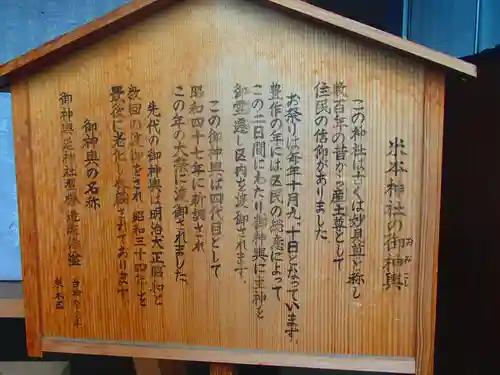 米本神社の御神輿
おみこし
この神社は古くは妙見益と称し
数百年の昔から産土尊として
住民の信仰がありました
お祭りは毎年十月九、十日となっています
豊作の年には区民の総意によって
この二日間にわたり御神輿に主神を
御霊遷し区内を渡御されます。
この御神輿は四代目として
昭和四十七年に新調され
この年の大祭に渡御されました。
先代の御神輿は明治大正昭和と
数回の渡御をされ昭和三十四年を
最後に老化し
されております
御神輿の名称
御神輿
神社型